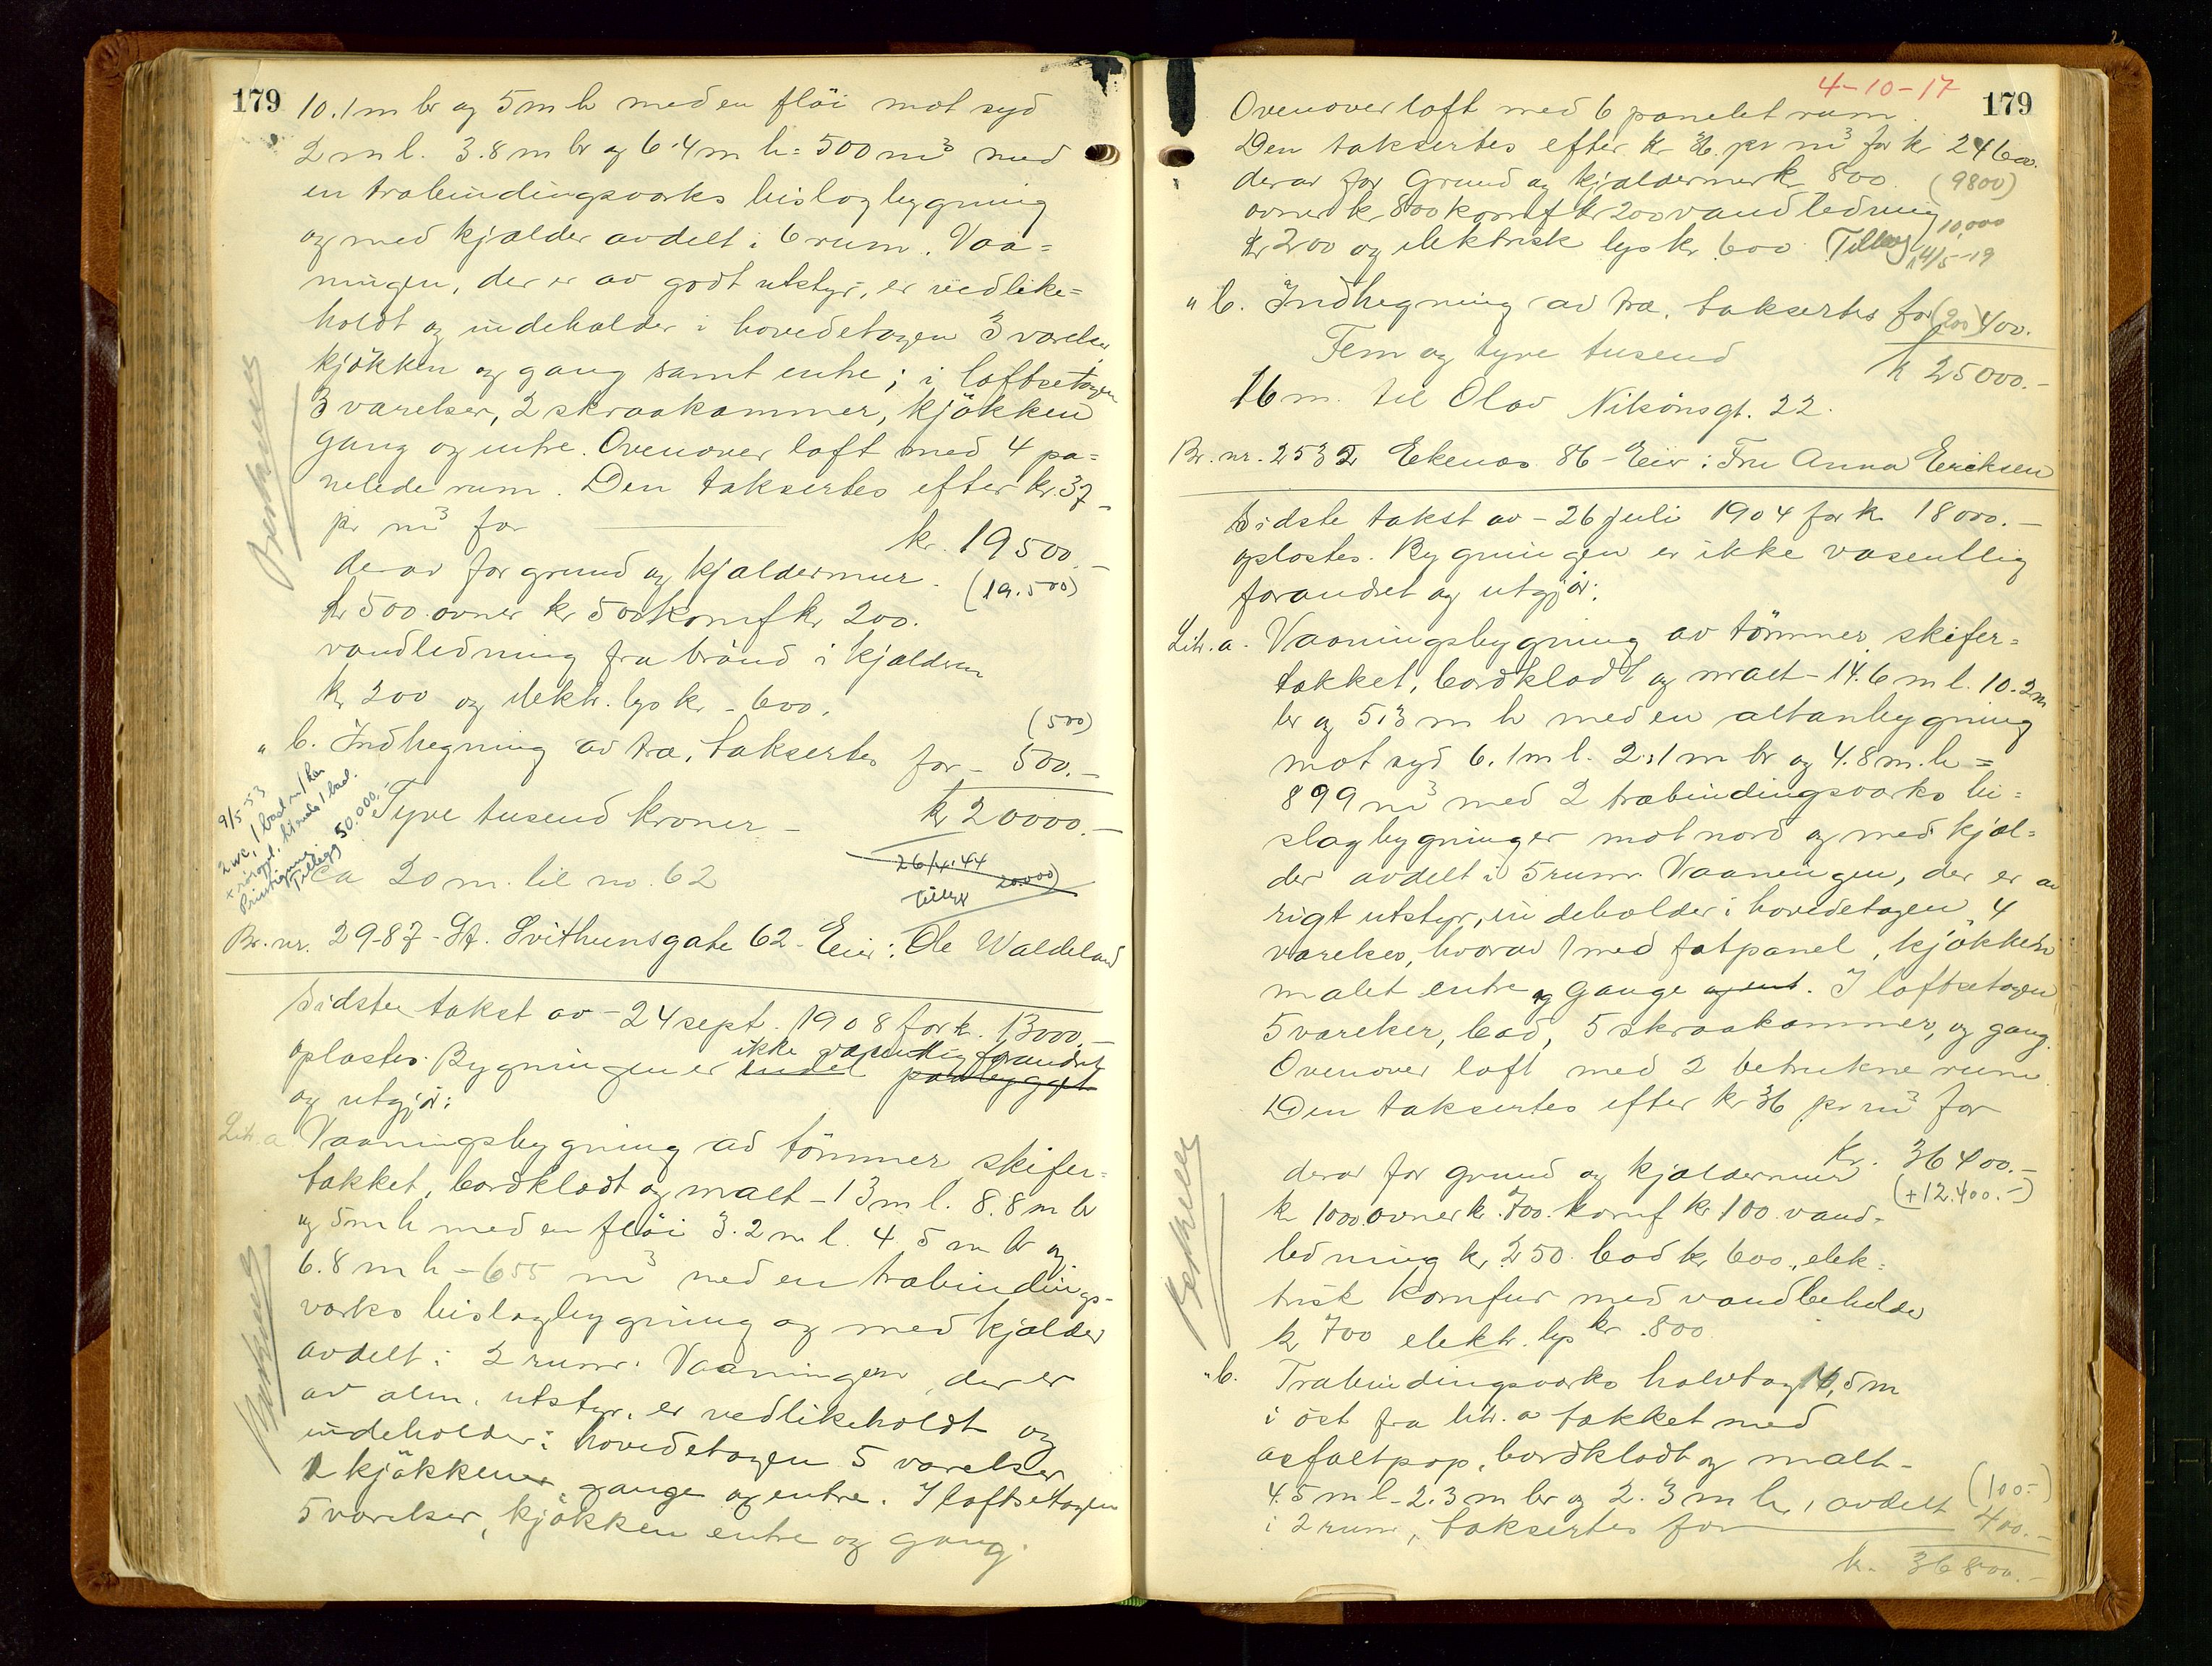 179
10.1 m br og 5 m h med en flöi mot syd
2 m l. 3.8 m br og 6.4 m h = 500 m³ med
en træbindingsværks bislagbygning
og med kjælder avdelt i 6 rum. Vaa=
ningen, der er av godt utstyr, er vedlike=
holdt og indeholder i hovedetagen 3 værelser
kjökken og gang samt entre; i loftsetagen
3 værelser, 2 skraakammer, kjökken
gang og entre. Ovenover loft med 4 pa=
nelede rum. Den taksertes efter kr. 37
pr m³ for kr. 19500.-
derav for grund og kjældermur. (19.500)
kr 500. ovner kr 500 komf kr 200.
vandledning fra brönd i kjælderen
kr 200 og elektr. lys kr - 600.
(500)
" b. Indhegning av træ, taksertes for - 500.-
Tyve tusend kroner - kr 20000.-
9/5-53
2 wc, 1 bad
Prisstigning
Tillegg 50.000.-
26/4.44
Tillegg 20.000)
Ca 20 m. til no. 62
Br. nr. 2987 - St. Svithunsgate 62 - Eier: Ole Waldeland
Sidste takst av - 24 sept. 1908 for kr. 13000.-
oplæstes. Bygningen er endel paabygget
ikke væsentlig forandret
og utgjör:
Litr. a. Vaaningsbygning av tömmer, skifer=
tækket, bordklædt og malt - 13 m l. 8.8 m br
og 5 m h med en flöi 3.2 m l. 4.5 m br og
6.8 m h = 655 m³ med en træbindings-
værks bislagbygning og med kjælder
avdelt i 2 rum. Vaaningen, der er
av alm. utstyr, er vedlikeholdt og
indeholder i hovedetagen 5 værelser
1 kjökken, gange og entre. I loftsetagen
5 værelser, kjökken entre og gang.
4-10-17
179
Ovenover loft med 6 panelet rum.
Den taksertes efter kr 36. pr m³ for kr 24600.
derav for grund og kjældermur kr 800. (9800)
ovner kr 800 komf kr 200 vandledning
kr 200 og elektrisk lys kr 600 Tillæg 10,000
14/5-19
" b. Indhegning av træ, taksertes for (200) 400.
Fem og tyve tusend kr 25000.-
16 m. til Olav Nilsönsgt. 22.
Br. nr. 2532 Ekenæs 86 - Eier: Fru Anna Ericksen
Sidste takst av - 26 juli 1904 for kr 18000.-
oplæstes. Bygningen er ikke væsentlig
forandret og utgjör:
Litr. a. Vaaningsbygning av tömmer, skifer=
tækket, bordklædt og malt - 14.6 m l. 10.2 m
br og 5.3 m h med en altanbygning
mot syd 6.1 m l. 2.1 m br og 4.8 m. h =
899 m³ med 2 træbindingsværks bi=
slagbygninger mot nord og med kjæl=
der avdelt i 5 rum. Vaaningen, der er av
rigt utstyr, indeholder i hovedetagen 4
værelser, hvorav 1 med fatpanel, kjökken
malet entre og gange og ent. I loftsetagen
5 værelser, bad, 5 skraakammer, og gang.
Ovenover loft med 2 betrukne rum.
Den taksertes efter kr 36 pr m³ for
Kr. 36400.-
derav for grund og kjældermur (+12.400.-)
kr 1000. ovner kr. 700. komf kr 100. vand=
ledning kr 250. bad kr 600., elek=
trisk komfur med vandbeholder
kr 700 elektr. lys kr. 800
" b. Træbindingsværks halvtag 16,5 m
i öst fra litr. a tækket med
asfaltpap, bordklædt og malt -
4.5 m l - 2.3 m br og 2.3 m h, avdelt (100-)
i 2 rum, taksertes for 400.-
kr. 36800.-